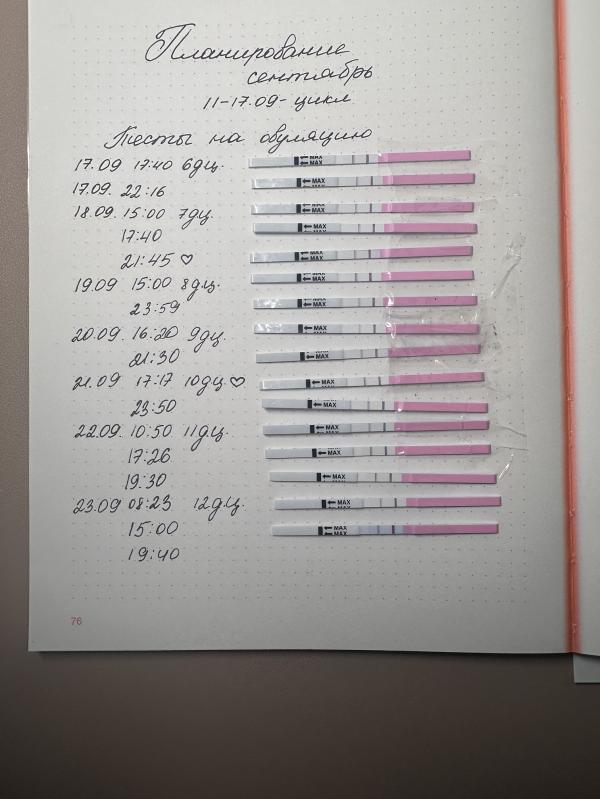 Планирование
сентябрь
11-17.09-цикл
Тесты на овуляцию
17.09 17:40 6дц.
MAX
MAX
17.09. 22:16
MAX
18.09. 15:00 7дц.
MAX
MAX
17:40
MAX
MAX
21:45 ♡
MAX
MAX
19.09 15:00 8дц.
MAX
23:59
MAX
MAX
20.09. 16:20 9дц.
MAX
21:30
MAX
MAX
21.09 17:17 10дц♡
MAX
23:50
MAX
22.09. 10:50 11дц.
MAX
17:26
MAX
19:30
MAX
23.09 08:23 12дц.
MAX
15:00
MAX
MAX
19:40
76